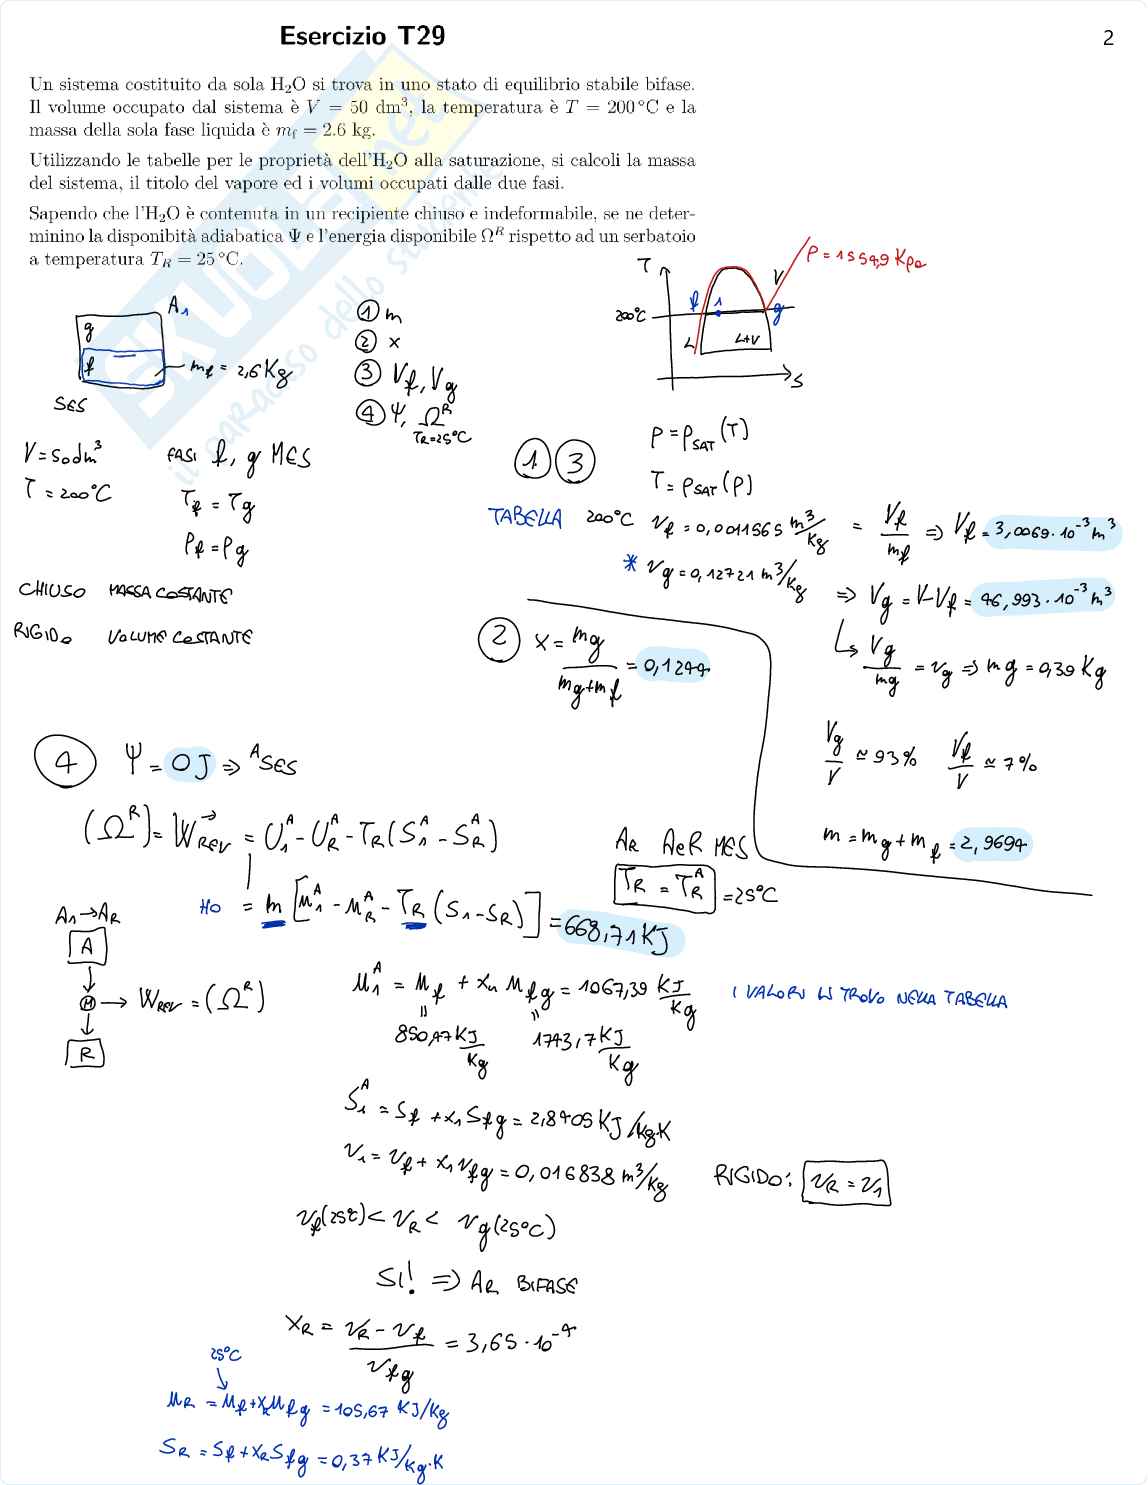 Esercizio T29
2
Un sistema costituito da sola H₂O si trova in uno stato di equilibrio stabile bifase.
Il volume occupato dal sistema è V = 50 dm³, la temperatura è T = 200 °C e la
massa della sola fase liquida è m_f = 2.6 kg.
Utilizzando le tabelle per le proprietà dell'H₂O alla saturazione, si calcoli la massa
del sistema, il titolo del vapore ed i volumi occupati dalle due fasi.
Sapendo che l'H₂O è contenuta in un recipiente chiuso e indeformabile, se ne deter-
minino la disponibità adiabatica Ψ e l'energia disponibile Ω^R rispetto ad un serbatoio
a temperatura T_R = 25 °C.
SKUOLA.net
il paradiso dello studente
A₁
g
f
m_f = 2,6 Kg
SES
① m
② x
③ V_f, V_g
④ Ψ, Ω^R
T_R=25°C
T
P = 1554,9 KPa
V
f 1 g
200°C
L
L+V
S
V = 50 dm³
T = 200°C
FASI f, g MES
T_f = T_g
P_f = P_g
CHIUSO MASSA COSTANTE
RIGIDO VOLUME COSTANTE
P = P_SAT (T)
T = P_SAT (P)
① ③
TABELLA 200°C v_f = 0,0011565 m³/Kg = V_f/m_f ⇒ V_f = 3,0069·10⁻³ m³
* v_g = 0,12721 m³/Kg ⇒ V_g = V-V_f = 46,993·10⁻³ m³
↳ V_g/m_g = v_g ⇒ m_g = 0,39 Kg
② x = m_g/(m_g+m_f) = 0,1244
V_g/V ≃ 93% V_f/V ≃ 7%
m = m_g + m_f = 2,9694
④ Ψ = 0 J ⇒ ^A SES
(Ω^R) = W_REV^→ = U₁^A - U_R^A - T_R (S₁^A - S_R^A)
HO = m [u₁^A - u_R^A - T_R (S₁-S_R)] = 668,71 KJ
A_R A e R MES
T_R = T_R^A = 25°C
A₁→A_R
A
M → W_REV = (Ω^R)
R
u₁^A = u_f + x₁ u_fg = 1067,39 KJ/Kg
I VALORI LI TROVO NELLA TABELLA
850,47 KJ/Kg 1743,7 KJ/Kg
S₁^A = S_f + x₁ S_fg = 2,8405 KJ/Kg·K
v₁ = v_f + x₁ v_fg = 0,016838 m³/Kg
RIGIDO: v_R = v₁
v_f(25°C) < v_R < v_g(25°C)
SI! ⇒ A_R BIFASE
x_R = (v_R - v_f)/v_fg = 3,65·10⁻⁴
25°C
u_R = u_f + x_R u_fg = 105,67 KJ/Kg
S_R = S_f + x_R S_fg = 0,37 KJ/Kg·K